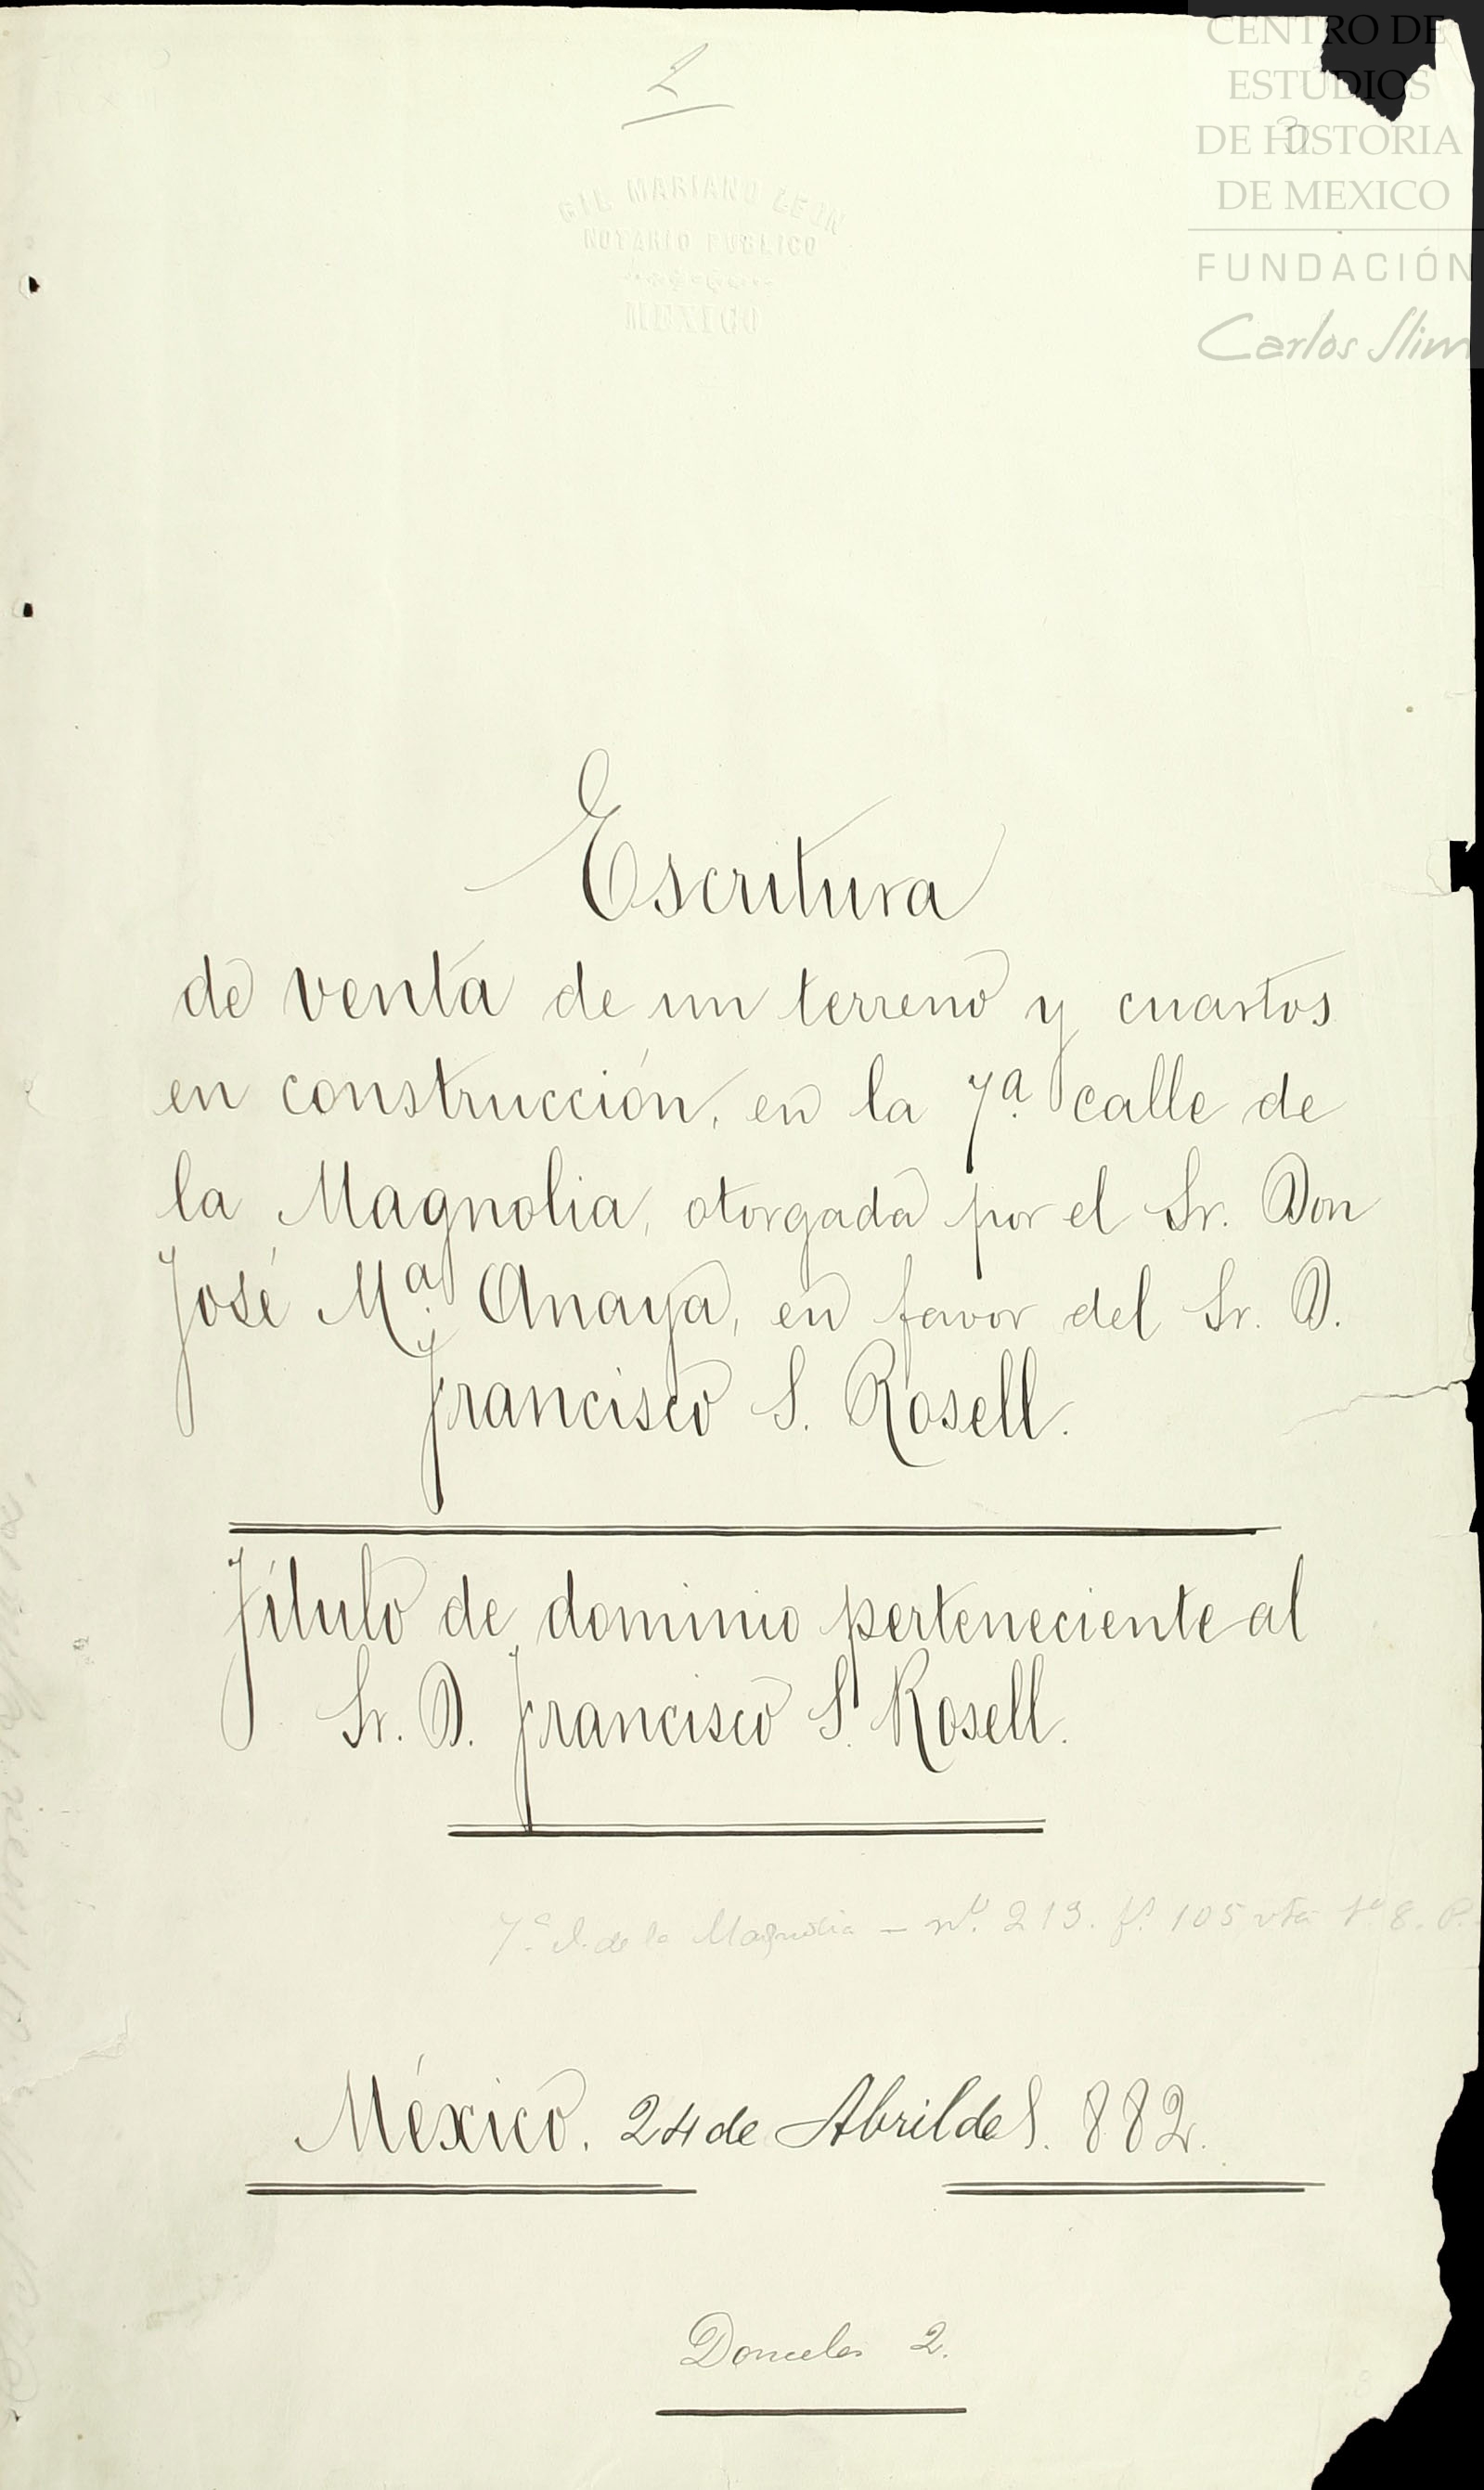 2
CENTRO DE
ESTUDIOS
DE HISTORIA
DE MEXICO
FUNDACIÓN
Carlos Slim
3
GIL MARIANO LEON
NOTARIO PUBLICO
MEXICO
Escritura
de venta de un terreno y cuartos
en construcción, en la 7ª calle de
la Magnolia, otorgada por el Sr. Don
José Mª Anaya, en favor del Sr. D.
Francisco S. Rosell.
Título de dominio perteneciente al
Sr. D. Francisco S. Rosell.
7ª C. de la Magnolia — nº. 213. fs. 105 vta tº 8. P.
México. 24 de Abril de 1.882.
Donceles 2.